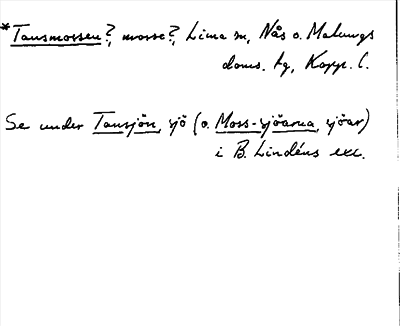 *Tansmossen?, mosse?, Lima sn, Nås o. Malungs
doms. tg, Kopp. l.
Se under Tansjön, sjö (o. Moss-sjöarna, sjöar)
i B. Lindéns exc.